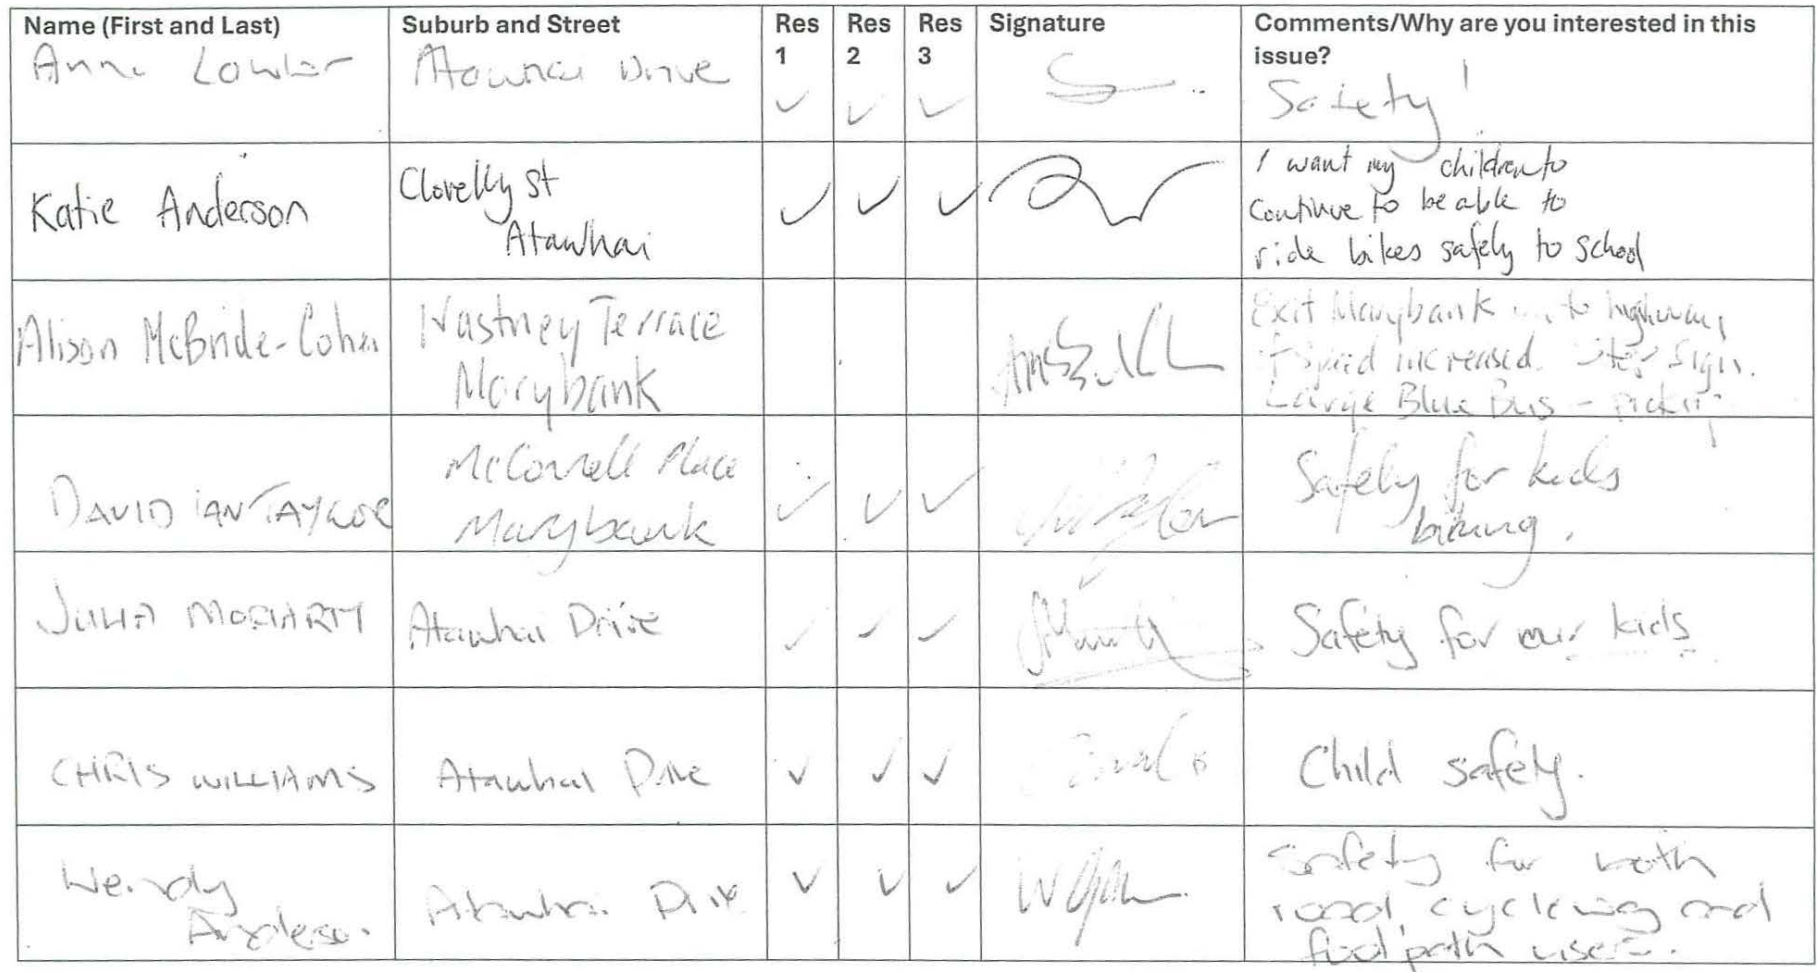 Name (First and Last) Suburb and Street Res 1 Res 2 Res 3 Signature Comments/Why are you interested in this issue?
Lowler Atawhai Drive ✓ ✓ ✓ Safety!
Katie Anderson Clovelly St ✓ ✓ ✓ I want my children to
Atawhai continue to be able to
ride bikes safely to school
Alison McBride-Cohen Wastney Terrace Exit Marybank to highway
Marybank speed increased. sign.
Large Blue Bus - pick
DAVID IAN TAYLOR McConnell Place ✓ ✓ ✓ Safety for kids
Marybank biking.
JULIA MORIARTY Atawhai Drive ✓ ✓ ✓ Safety for our kids
CHRIS WILLIAMS Atawhai Drive ✓ ✓ ✓ Child safety.
Wendy Atawhai Drive ✓ ✓ ✓ Safety for both
Anderson road, cycleway and
footpath users.